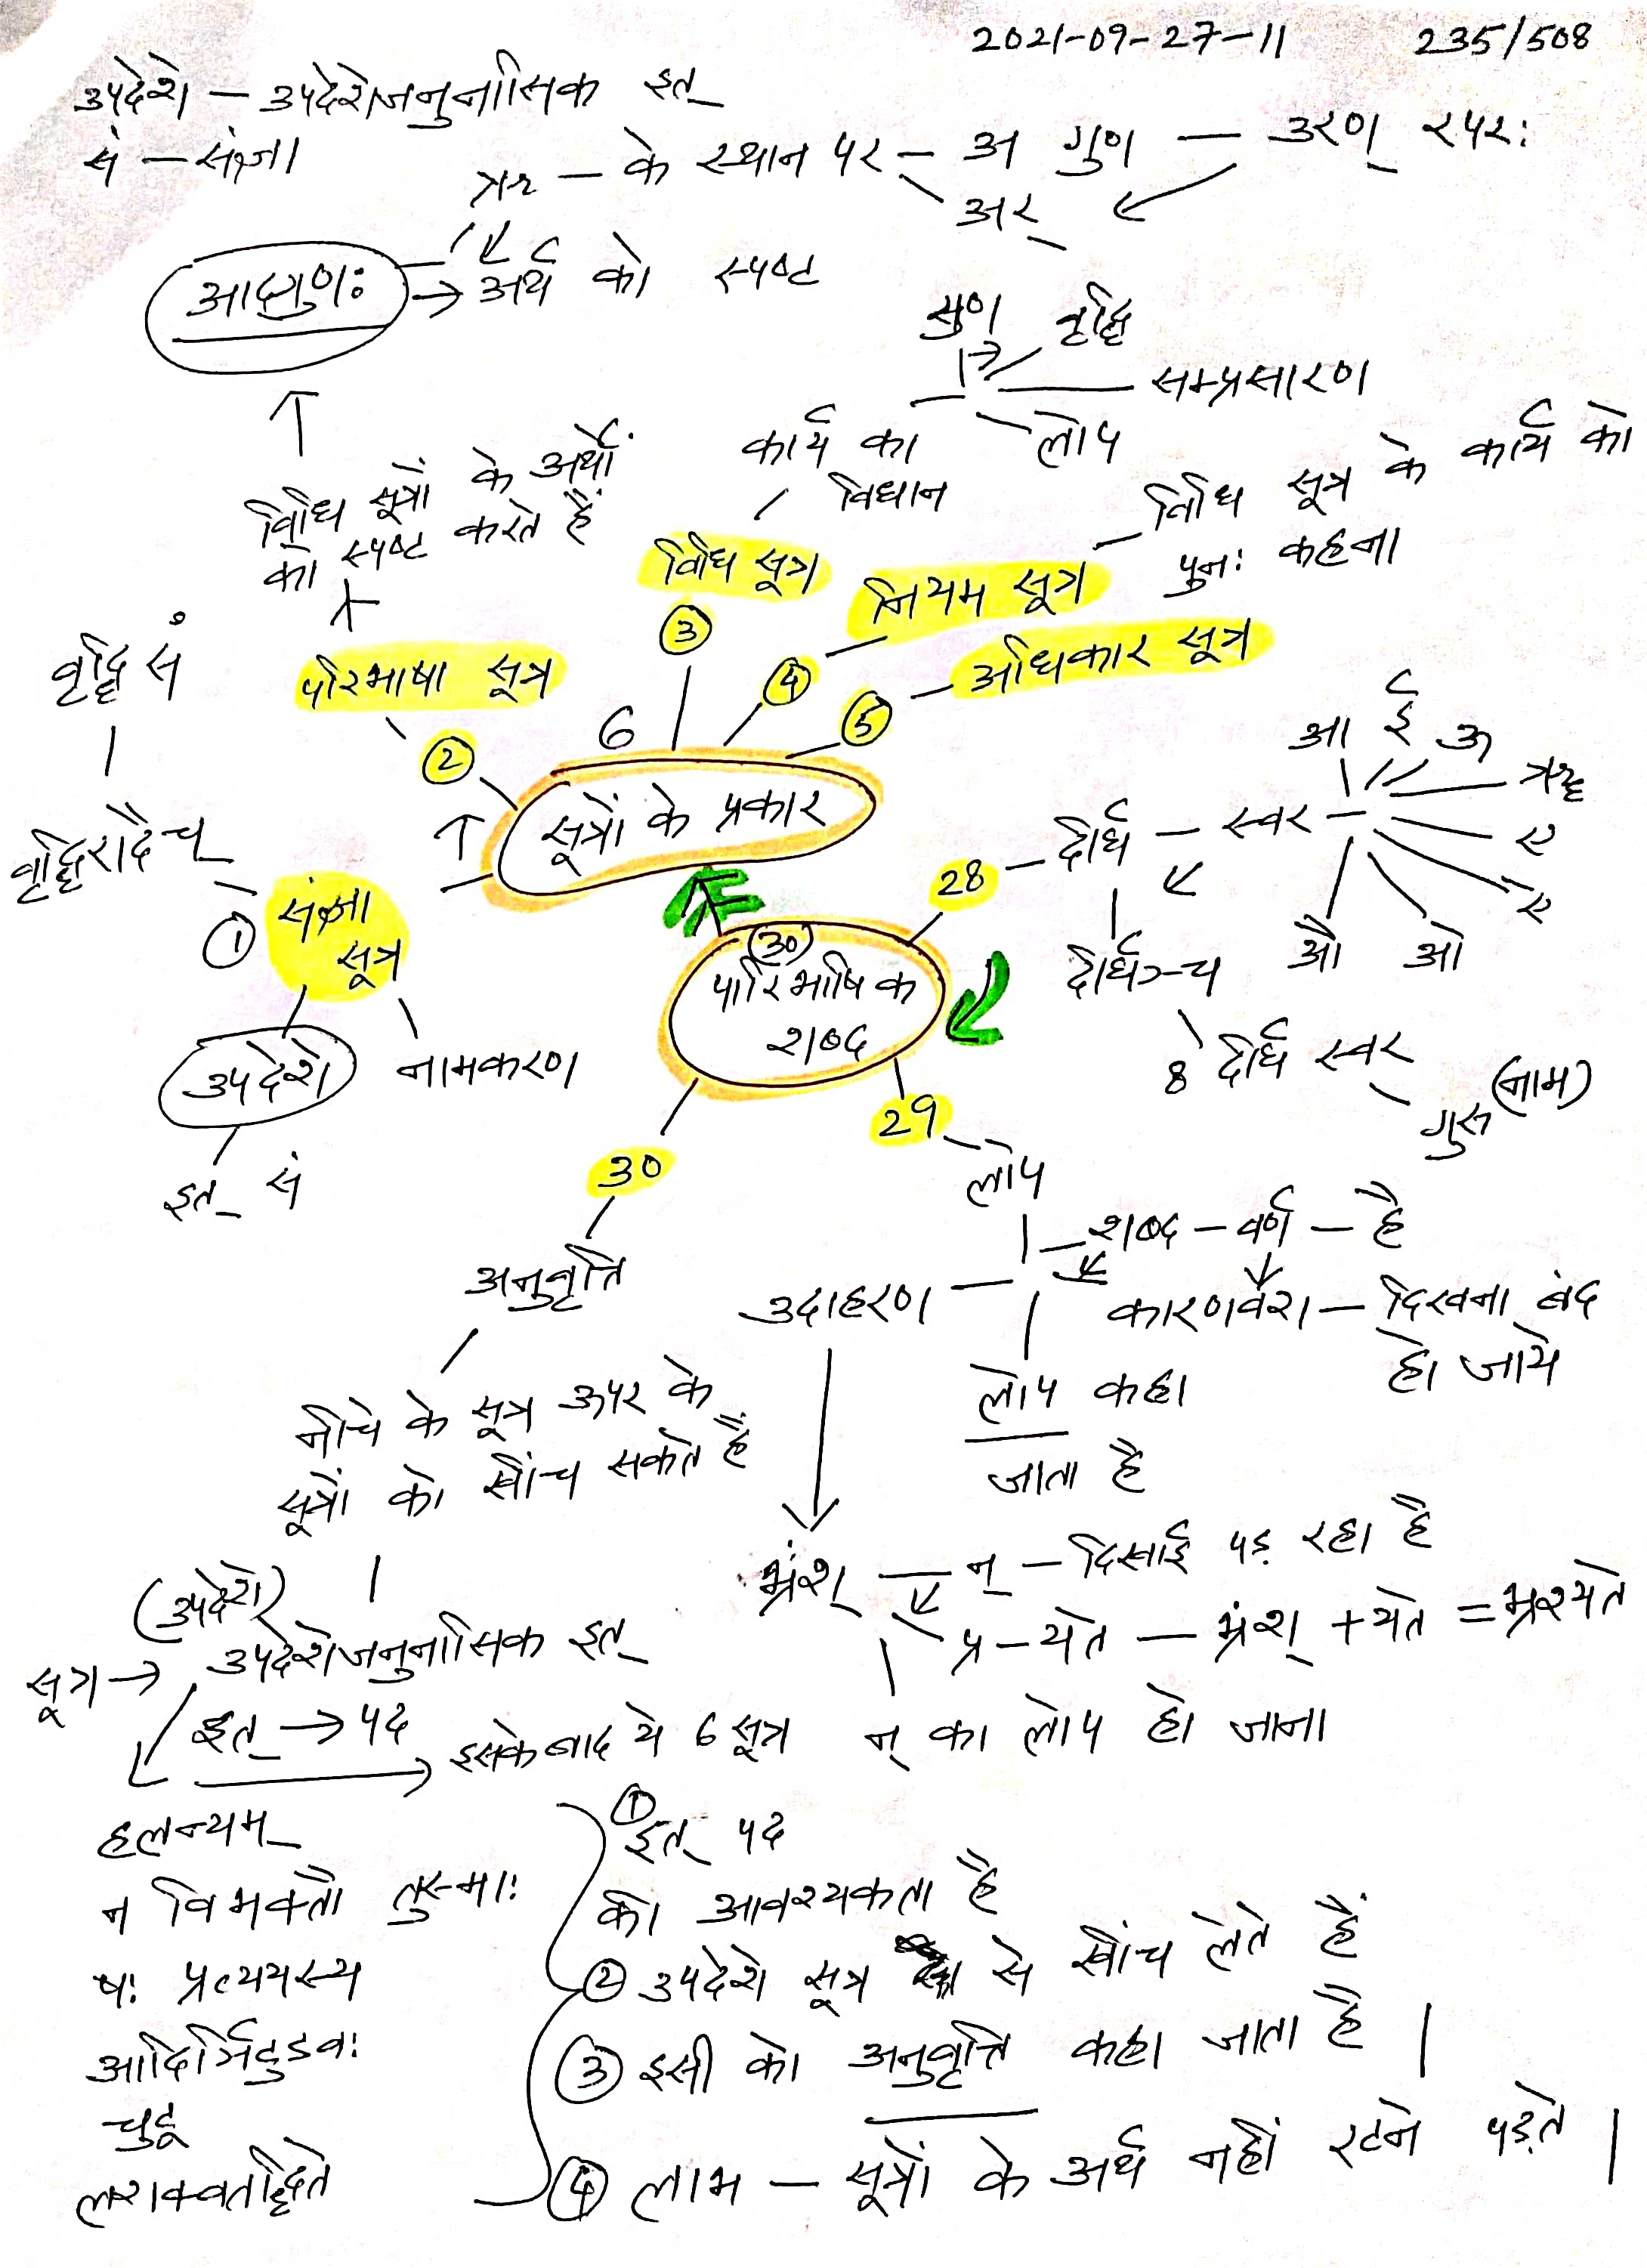 2021-09-27-11 235/508
उपदेशे – उपदेशेजनुनासिक इत्
सं – संज्ञा
ऋ – के स्थान पर – अ गुण – उरण् रपरः
अर्
आदगुणः → अर्थ को स्पष्ट
गुण वृद्धि
सम्प्रसारण
लोप
कार्य का
विधान
विधि सूत्रों के अर्थों
को स्पष्ट करते हैं
विधि सूत्र के कार्य को
पुनः कहना
विधि सूत्र
③
नियम सूत्र
④
अधिकार सूत्र
⑤
परिभाषा सूत्र
②
वृद्धि सं
वृद्धिरादैच्
6
सूत्रों के प्रकार
① संज्ञा
सूत्र
उपदेशे नामकरण
इत् सं
(30)
पारिभाषिक
शब्द
28 – दीर्घ – स्वर –
आ ई ऊ
ॠ
ए
ऐ
औ ओ
दीर्घञ्च
8 दीर्घ स्वर
गुरु (नाम)
29
लोप
शब्द – वर्ण – है
कारणवश – दिखना बंद
हो जाये
उदाहरण
लोप कहा
जाता है
30
अनुवृत्ति
नीचे के सूत्र ऊपर के
सूत्रों को खींच सकते हैं
भ्रंश् – न् – दिखाई पड़ रहा है
प्र – येते – भ्रंश् + येते = भ्रश्येते
न् का लोप हो जाना
(उपदेशे)
सूत्र → उपदेशेजनुनासिक इत्
इत् → पद
इसके बाद ये 6 सूत्र
हलन्यम्
न विभक्तौ तुस्माः
षः प्रत्ययस्य
आदिर्ञिटुडवः
चुटू
लशक्वतद्धिते
① इत् पद
की आवश्यकता है
② उपदेशे सूत्र से खींच लेते हैं
③ इसी को अनुवृत्ति कहा जाता है |
④ लाभ – सूत्रों के अर्थ नहीं रटने पड़ते |